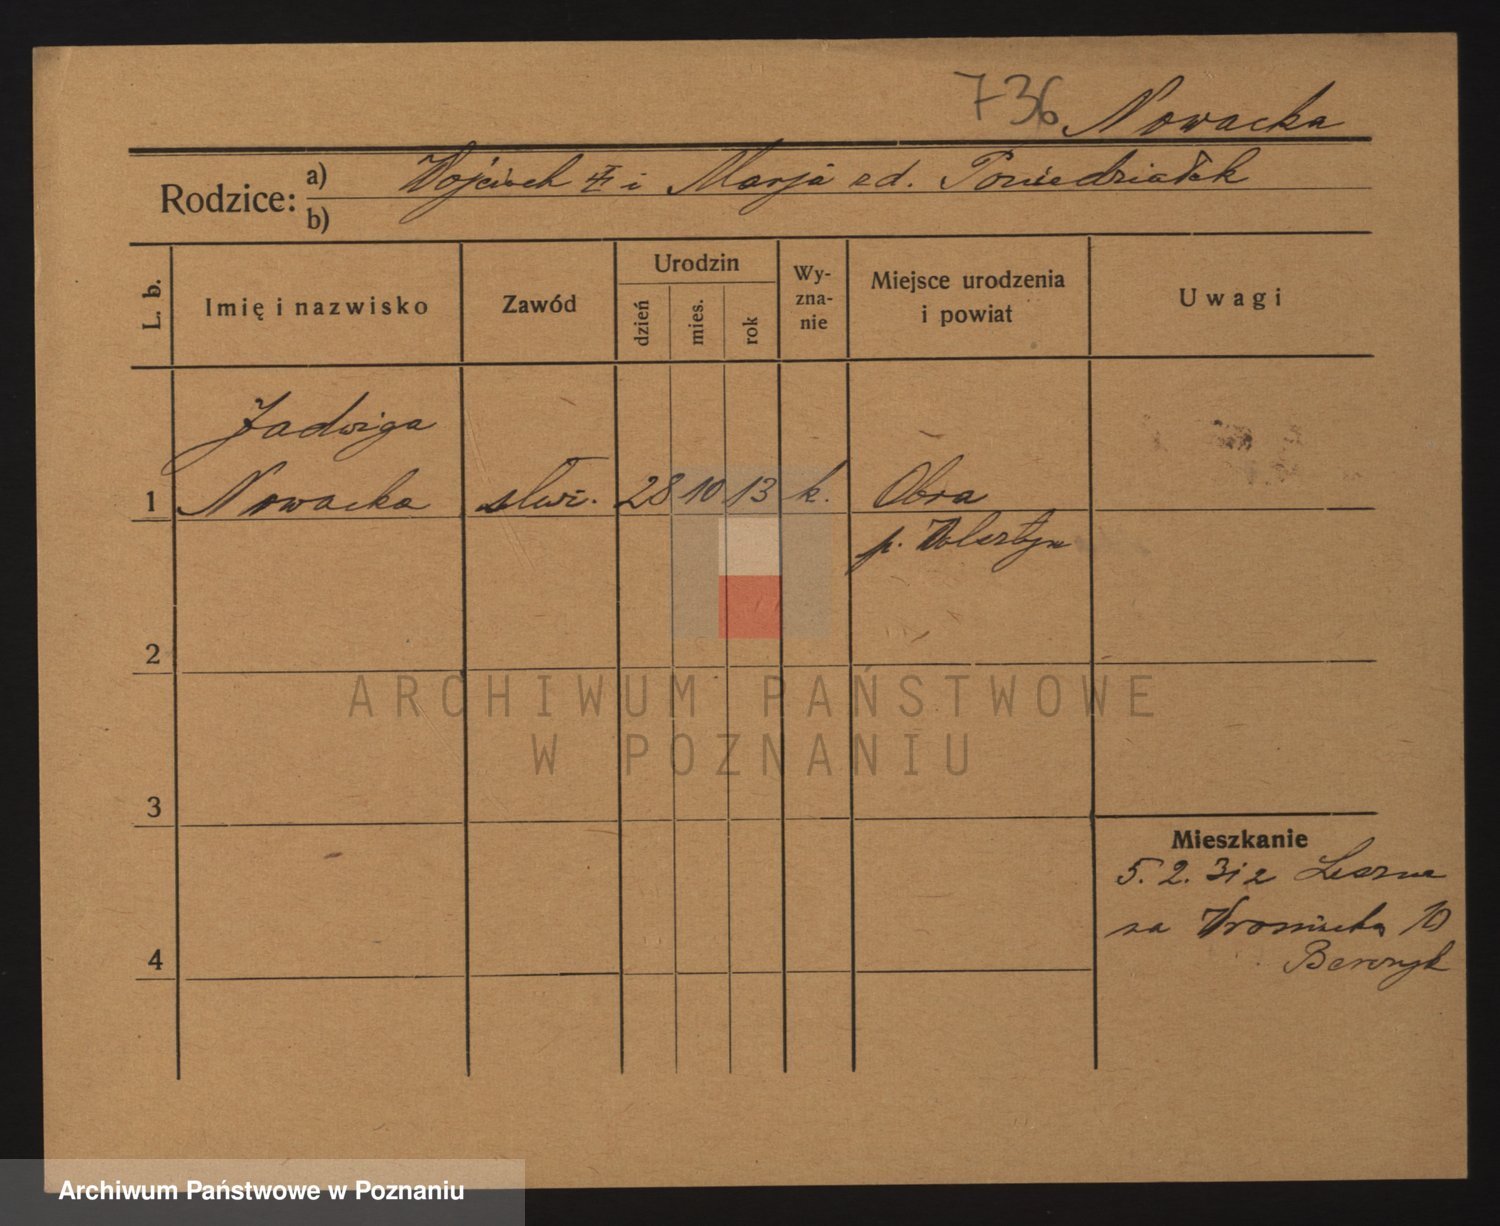 736 Nowacka
Rodzice: a) Wojciech i Marja zd. Poniedziałek
b)
L. b.
Imię i nazwisko
Zawód
Urodzin
dzień
mies.
rok
Wy-
zna-
nie
Miejsce urodzenia
i powiat
Uwagi
Jadwiga
1 Nowacka służ. 28 10 13 k. Obra
p. Wolsztyn
2
ARCHIWUM PAŃSTWOWE
W POZNANIU
3
Mieszkanie
5. 2. 31 z Leszna
na Wroniecka 10
4
Archiwum Państwowe w Poznaniu